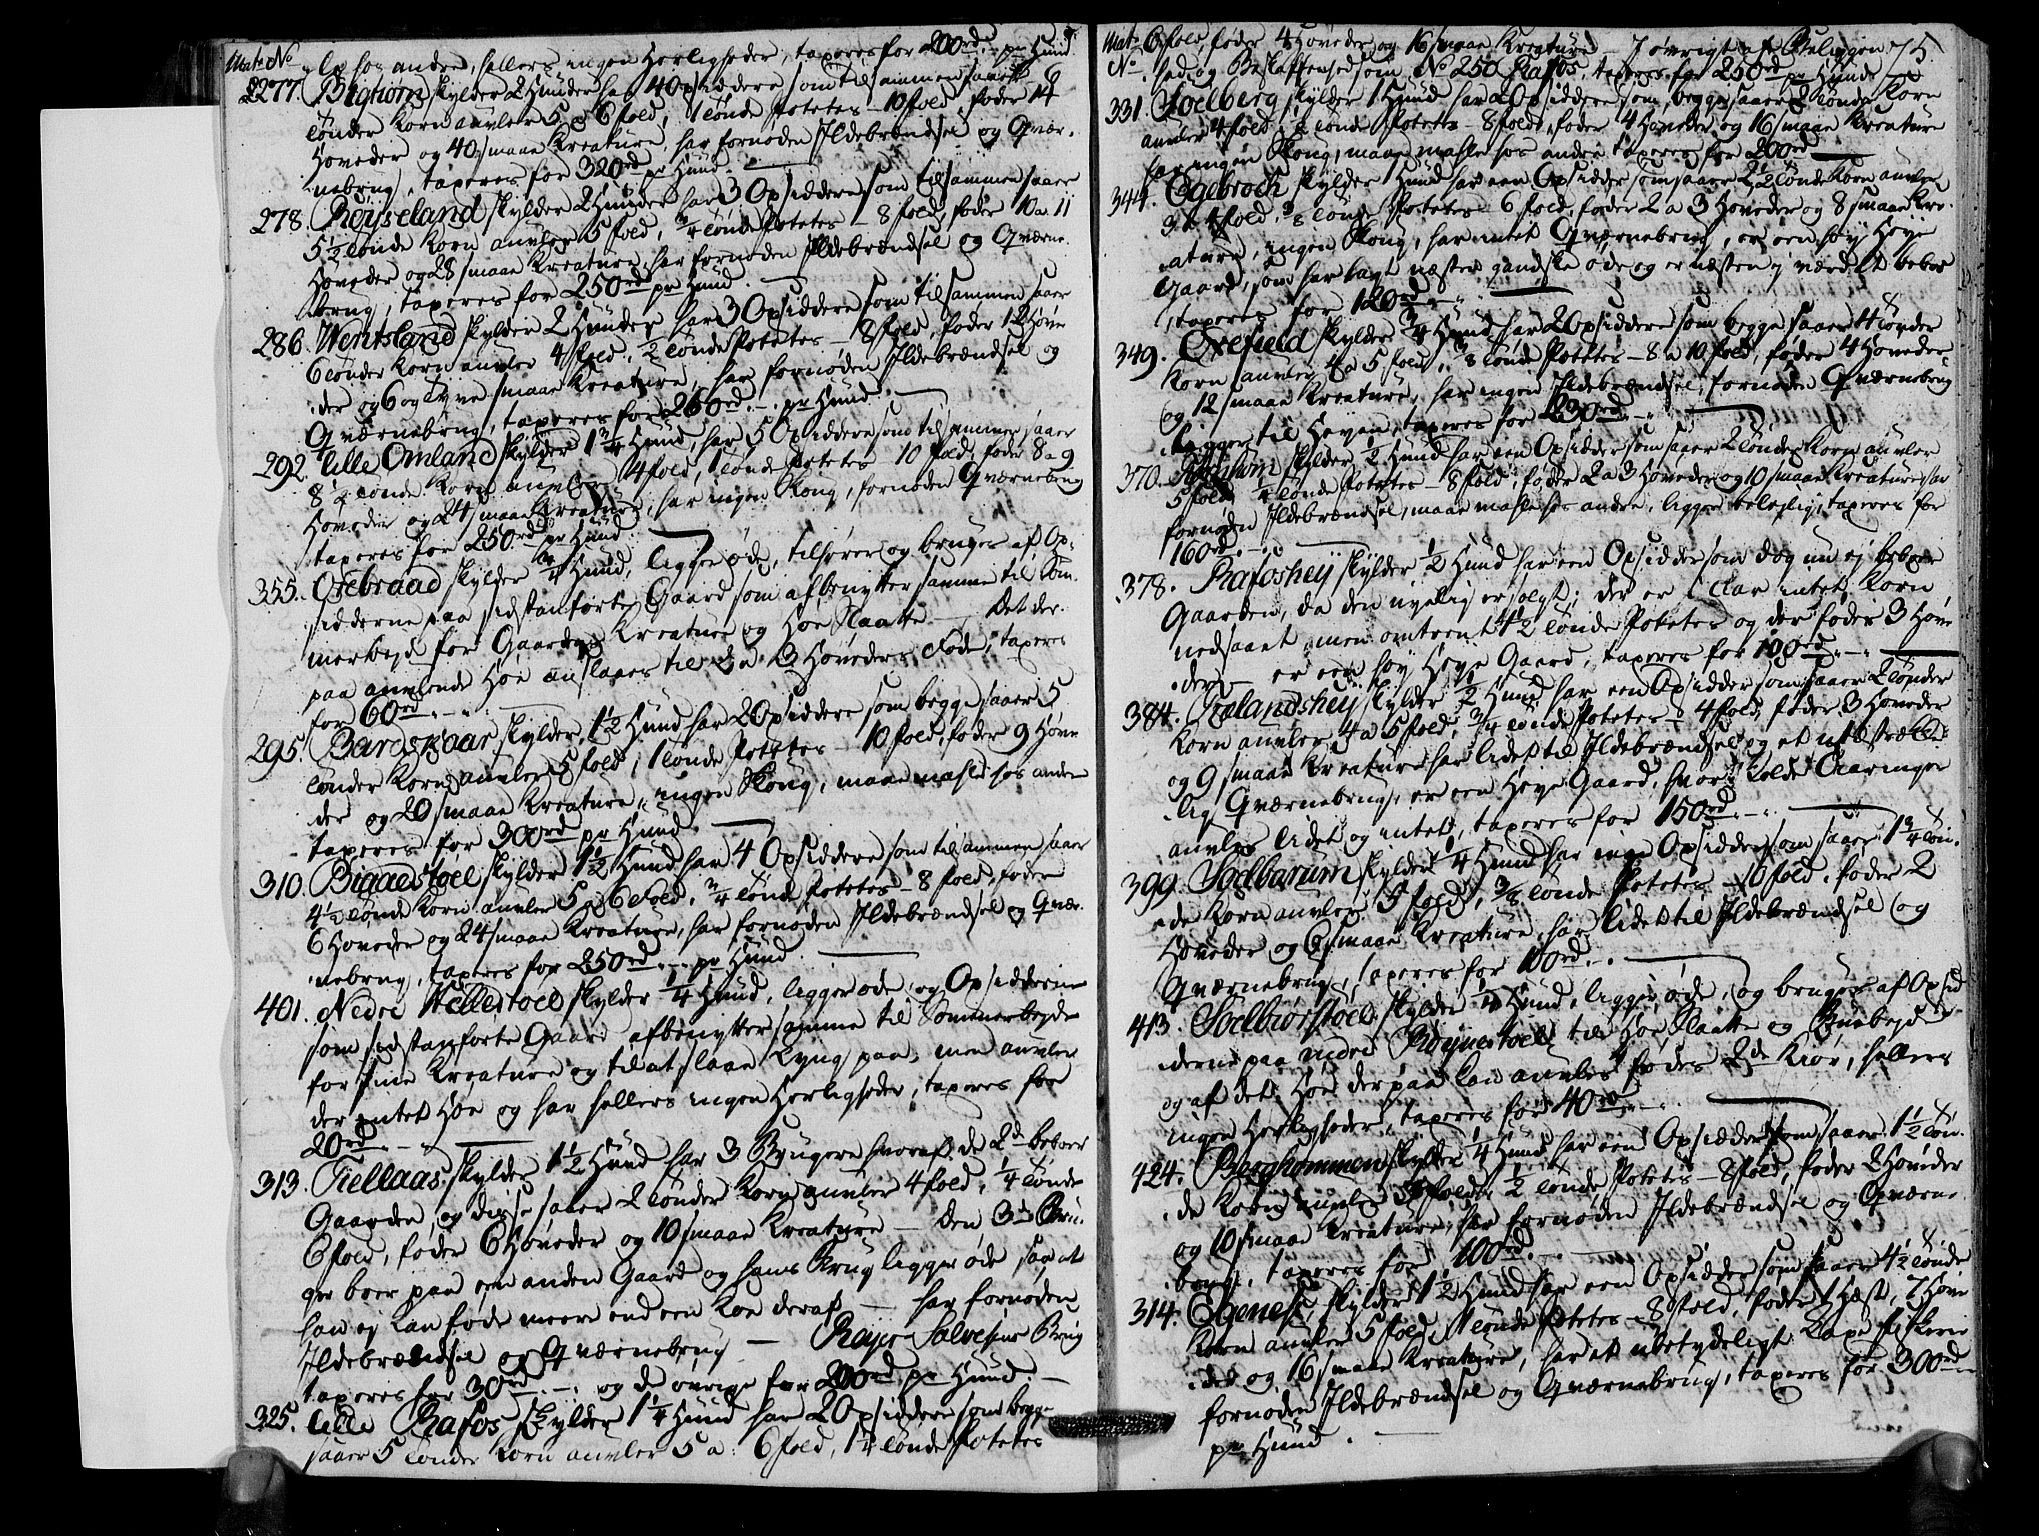 Mat: No
hos andre, hellers ingen Herligheder, taxeres for 200rd pr Hund
2277. Bighom skylder 2 Hunder har 4 Opsiddere som tilsammen saaer 8
tønder Korn anvler 5 a 6 fold, 1 tønde Potetes - 10 fold, føder 14
Høveder og 40 smaae Kreature, har fornøden Ildebrændsel og Qvær-
nebrug, taxeres for 320rd pr Hund.
278. Røysseland skylder 2 Hunder har 3 Opsiddere som tilsammen saaer
5½ tønde Korn anvler 5 fold, ¾ tønde Potetes - 8 fold, føder 10 a 11
Høveder og 28 smaae Kreature, har fornøden Ildebrændsel og Qværne-
brug, taxeres for 250rd pr Hund.
286. Wentsland skylder 2 Hunder har 3 Opsiddere som tilsammen saaer
6 tønder Korn anvler 4 fold, ½ tønde Potetes - 8 fold, føder 12 Høve-
der og 6 og Tyve smaae Kreature, har fornøden Ildebrændsel og
Qværnebrug, taxeres for 260rd pr Hund.
292. Lille Omland skylder 1¾ Hund, har 5 Opsiddere som tilsammen saaer
8½ tønde Korn anvler 4 fold, 1 tønde Potetes 10 fold, føder 8 a 9
Høveder og 24 smaae Kreature, har ingen Skoug, fornøden Qværnebrug
taxeres for 250rd pr Hund.
355. Orebraad skylder ¼ Hund, ligger øde, tilhører og bruges af Op-
sidderne paa sidstanførte Gaard som afbenytter samme til Som-
merbejd for Gaardens Kreature og Høe Slaatte - Det der-
paa anvlende Høe anslaaes til 2 a 3 Høveders Føde, taxeres
for 60rd
295. Bardskaar skylder 1½ Hund har 2 Opsiddere som begge saaer 5
tønder Korn anvler 5 fold, 1 tønde Potetes - 10 fold, føder 9 Høve
der og 20 smaae Kreature, ingen Skoug, maae mahle hos andre
taxeres for 300rd pr Hund.
310. Biggestoel skylder 1½ Hund har 4 Opsiddere som tilsammen saaer
4½ tønde Korn anvler 5 a 6 fold, ¾ tønde Potetes - 8 fold, føder
6 Høveder og 24 smaae Kreature, har fornøden Ildebrændsel og Qvær-
nebrug, taxeres for 250rd pr Hund.
401. Nedre Hellestoel skylder ¼ Hund, ligger øde, og Opsidderne
som sidstanførte Gaard afbenytter samme til Sommerbejde
for sine Kreature og til at slaae Lyng paa, men anvler
der intet Høe og har hellers ingen Herligheder, taxeres for
20rd
313. Fiellaas skylder 1½ Hund har 3 Brugere hvoraf de 2de beboer
Gaarden, og disse saaer 2 tønder Korn anvler 4 fold, ¼ tønde
6 fold, føder 6 Høveder og 10 smaae Kreature - Den 3de Bru-
ger boer paa een anden Gaard og hans Brug ligger øde saa at
han ej kan føde meere end een Koe deraf - har fornøden
Ildebrændsel og Qværnebrug - Rojer Salvesens Brug
taxeres for 30rd og de øvrige for 200rd pr Hund.
325. Lille Rafos skylder 1¼ Hund har 2 Opsiddere som begge
saaer 5 tønder Korn anvler 5 a 6 fold, 1½ tønde Potetes
75.
Mat: 6 fold, føder 4 Høveder og 16 smaae Kreature - I øvrigt af Beliggen
No hed og Beskaffenhed som No 250 Rafos, taxeres for 250rd pr Hund
331. Soelberg skylder 1 Hund har 2 Opsiddere som begge saaer 2 tønder Korn
anvler 4 fold, ½ tønde Potetes - 8 fold, føder 4 Høveder og 16 smaae Kreature
har ingen Skoug, maae mahle hos andre taxeres for 200rd
344. Egebroch skylder 1 Hund har een Opsidder som saaer 2½ tønde Korn anvler
3 a 4 fold, ⅜ tønde Potetes 6 fold, føder 2 a 3 Høveder og 8 smaae Kre-
ature, ingen Skoug, har intet Qværnebrug, er een høy Heye
Gaard, som har lagt næsten gandske øde og er næsten ej værd at beboe
taxeres for 120rd
349. Orefield skylder ¾ Hund har 2 Opsiddere som begge saaer 4 tønder
Korn anvler 4 a 5 fold, ⅜ tønde Potetes - 8 a 10 fold, føder 4 Høveder
og 12 smaae Kreature, har ingen Ildebrændsel, fornøden Qværnebrug
ligger til Heyen, taxeres for 230rd
370. skylder ½ Hund har een Opsidder som saaer 2 tønder Korn anvler
5 fold, ¼ tønde Potetes - 8 fold, føder 2 a 3 Høveder og 10 smaae Kreature har
fornøden Ildebrændsel, maae mahle hos andre, ligger belejlig, taxeres for
160rd
378. Rafoshey skylder ½ Hund har een Opsidder som dog nu ej beboer
Gaarden, da den nyelig er solgt; der er i Aar intet Korn
nedsaaet men omtrent ½ tønde Potetes og der føder 3 Høve
der - er een høy Heye Gaard, taxeres for 100rd
384. Trælandshey skylder ½ Hund har een Opsidder som saaer 2 tønder
Korn anvler 4 a 5 fold, ¾ tønde Potetes - 4 fold, føder 3 Høveder
og 9 smaae Kreature har lidet til Ildebrændsel og et utilstrække-
lig Qværnebrug, er een Heye Gaard, hvor i kolde Aaringer
anvles lidet og intet, taxeres for 150rd
399. Soelbarum skylder ¼ Hund har een Opsidder som saaer 1¾ tøn-
de Korn anvler 5 fold, ⅜ tønde Potetes - 6 fold, føder 2
Høveder og 6 smaae Kreature, har lidet til Ildebrændsel og
Qværnebrug, taxeres for 100rd
413. Soelbiørstoel skylder ¼ Hund, ligger øde, og bruges af Opsid
derne paa nedre Røynestoel til Høe Slaatte og Buebejde
og af det Høe der paa kan anvles fødes 2de Kiør, hellers
ingen Herligheder, taxeres for 40rd
424. Berghommen skylder ¼ Hund har een Opsidder som saaer 1½ tøn-
de Korn anvler 5 fold, ½ tønde Potetes - 8 fold, føder 2 Høveder
og 10 smaae Kreature, har fornøden Ildebrændsel og Qværne-
brug, taxeres for 100rd
314. Egenes, skylder 1½ Hund har een Opsidder som saaer 4½ tønde
Korn anvler 5 fold, 1 tønde Potetes - 8 fold, føder 1 Hæst, 7 Høve
der og 16 smaae Kreature, har et ubetydeligt Laxe fiskerie
fornøden Ildebrændsel og Qværnebrug, taxeres for 300rd
pr Hund.